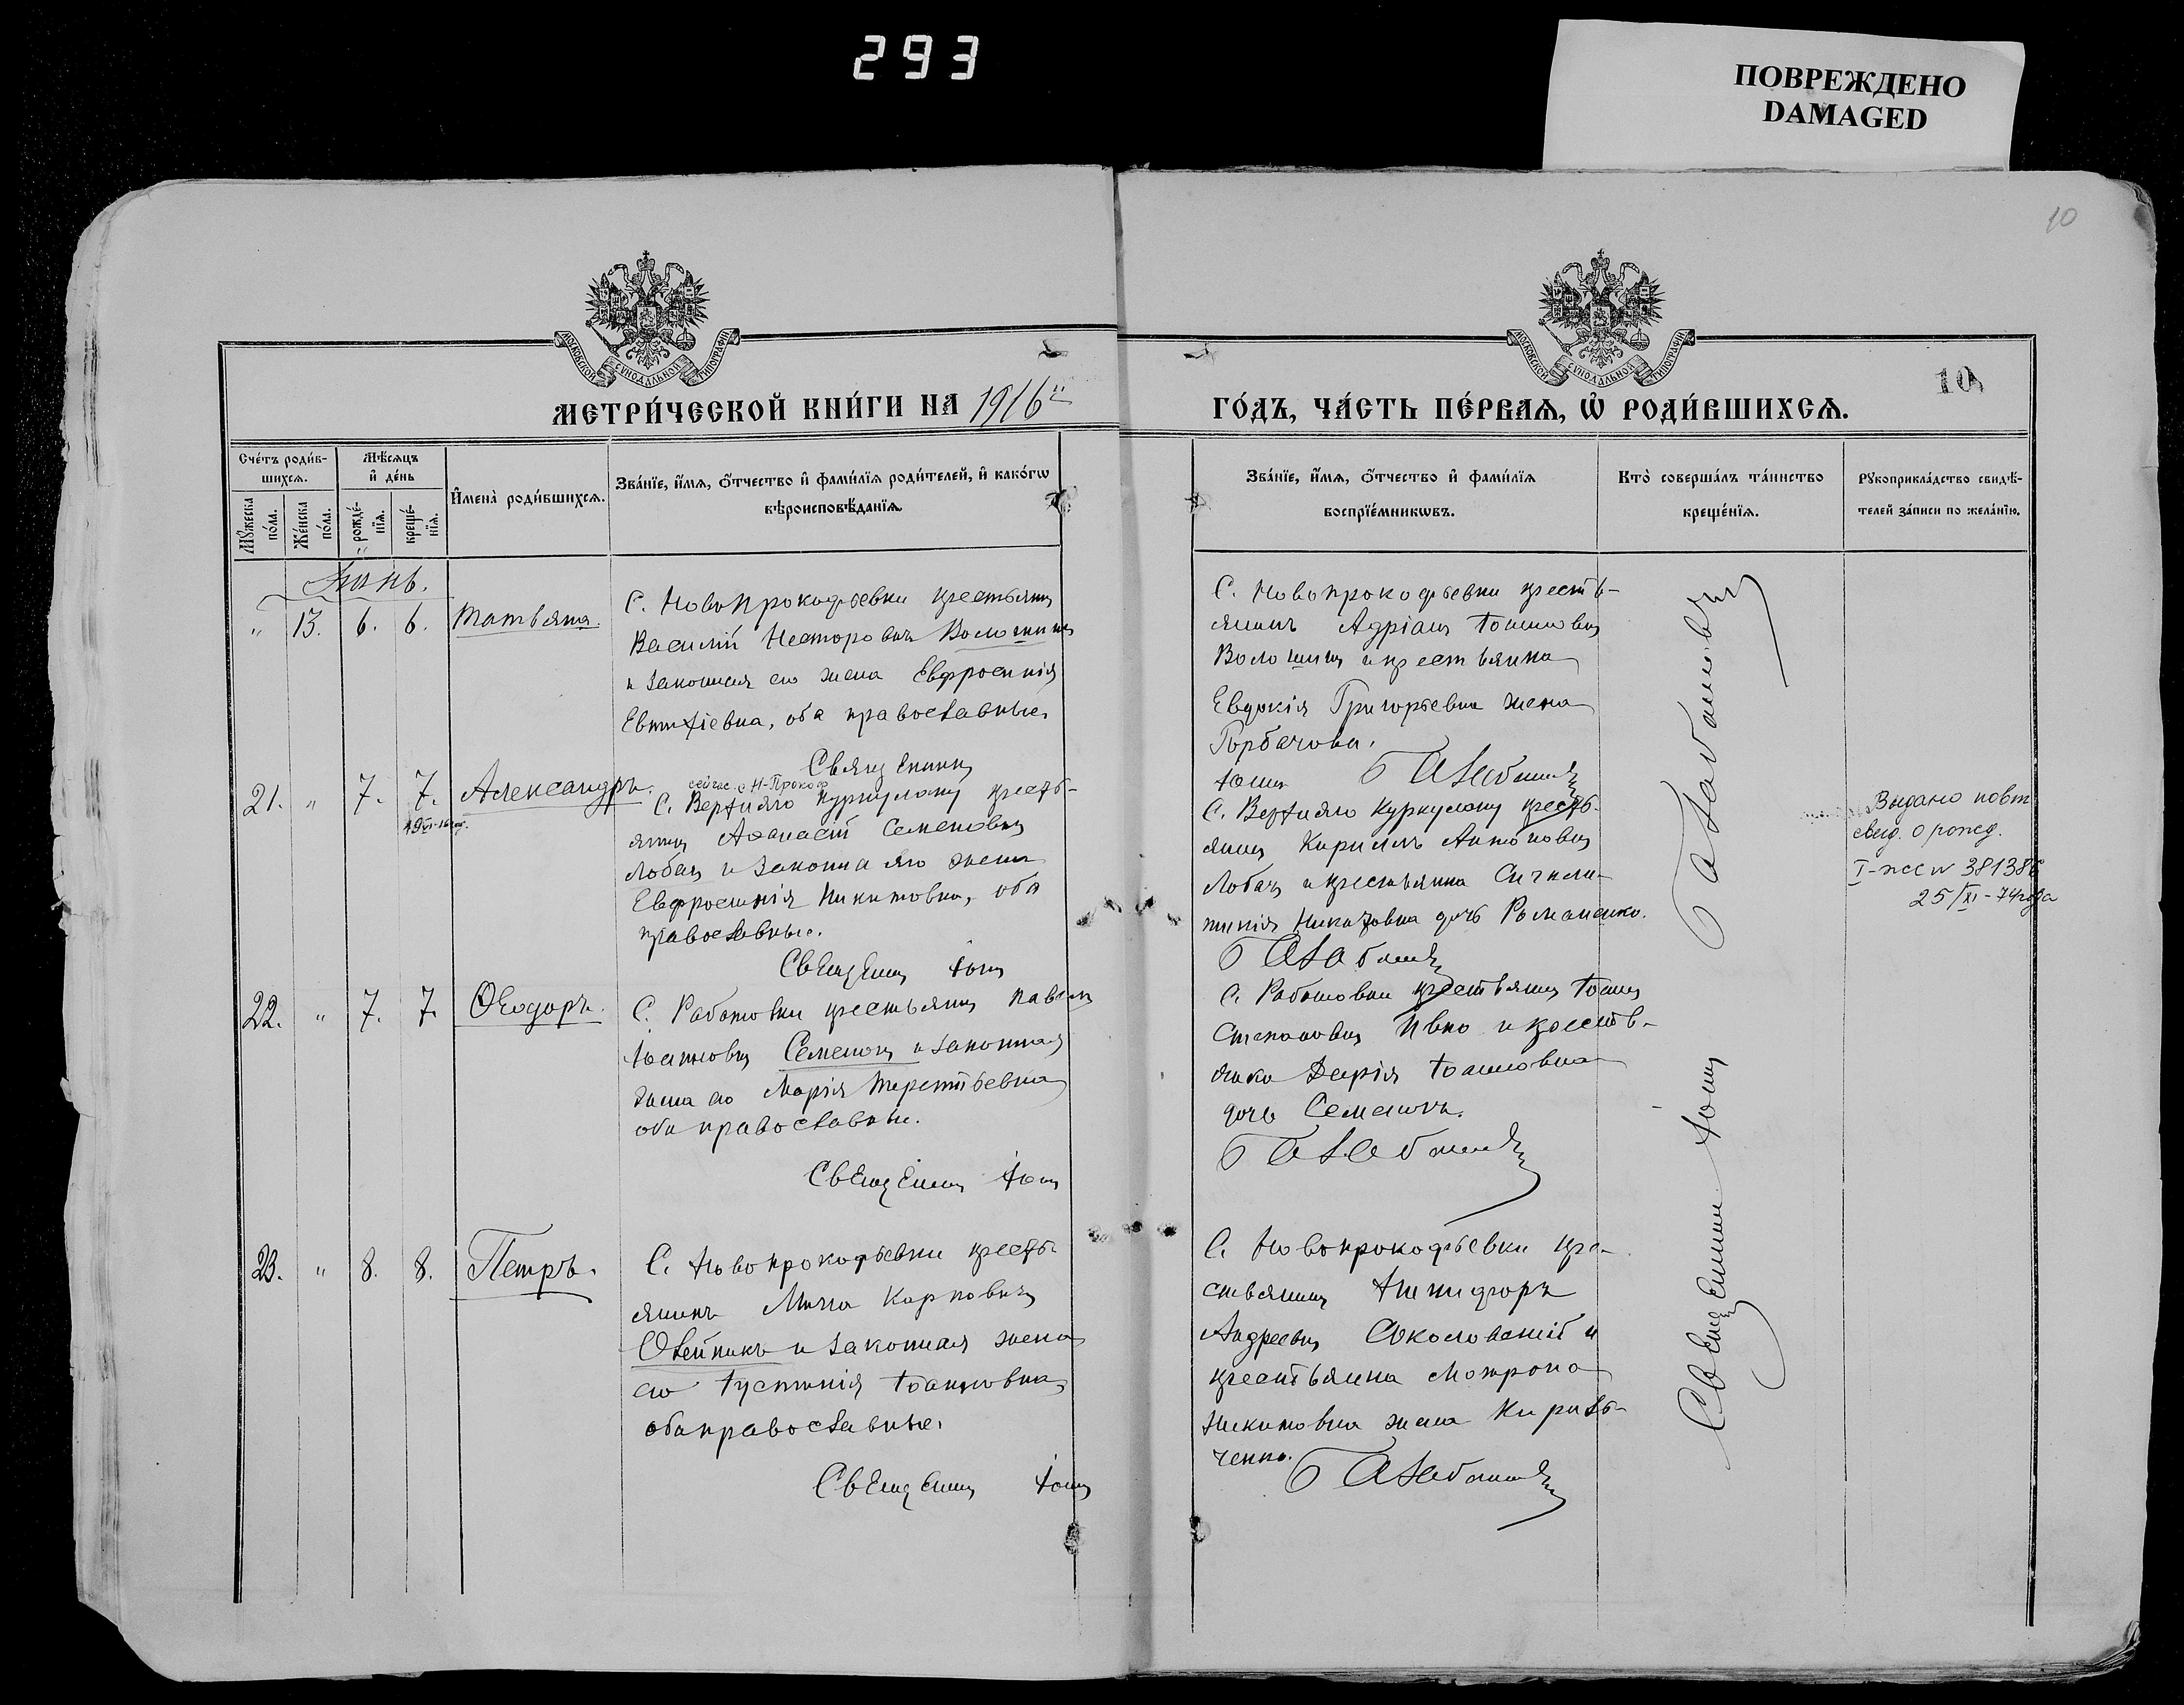 293
ПОВРЕЖДЕНО
DAMAGED
10
МОСКОВСКОЙ СУНОДАЛЬНОЙ ТИПОГРАФІИ
МОСКОВСКОЙ СУНОДАЛЬНОЙ ТИПОГРАФІИ
10
МЕТРИ́ЧЕСКОЙ КНИ́ГИ НА 1916й ГО́ДЪ, ЧА́СТЬ ПЕ́РВАѦ, Ѡ҆ РОДИ́ВШИХСѦ.
Сче́тъ роди́в-
шихсѧ.
Мꙋ́жеска
по́ла.
Же́нска
по́ла.
Мѣ́сѧцъ
и҆ де́нь
рожде́-
нїѧ.
креще́-
нїѧ.
И҆мена̀ роди́вшихсѧ.
Зва́нїе, и҆́мѧ, ѻ҆́тчество и҆ фами́лїѧ роди́телей, и҆ како́гѡ
вѣроисповѣ́данїѧ.
Зва́нїе, и҆́мѧ, ѻ҆́тчество и҆ фами́лїѧ
воспрїе́мникѡвъ.
Кто̀ соверша́лъ та́инство
креще́нїѧ.
Рꙋкоприкла́дство свидѣ́-
телей за́писи по жела́нїю.
Іюнь.
" 13. 6. 6. Татьяна.
С. Новопрокофьевки крестьянинъ
Василій Несторовичъ Волошинъ
и законная его жена Евфросинія
Евтихіевна, оба православные.
Священникъ
С. Новопрокофьевки кресть-
янинъ Адріанъ Іоанновичъ
Волошинъ и крестьянка
Евдокія Григорьевна жена
Горбачова.
Іоаннъ
21. " 7. 7. Александръ.
сейчас с Н-Прокоф
С. кресть-
янинъ Афанасій Семеновичъ
Лобачъ и законная его жена
Евфросинія Никитовна, оба
православные.
Священникъ Іоаннъ
С. кресть-
янинъ Кириллъ Антоновичъ
Лобачъ и крестьянка Синкли-
тикія Никитовна дочь Романенко.
Выдано повт
свид. о рожд.
I-жс № 381386
25/XI-74года
22. " 7. 7. Ѳеодоръ.
С. Работовки крестьянинъ Павелъ
Іоанновичъ Семенюкъ и законная
жена его Марія Терентьевна
оба православные.
Священникъ Іоаннъ
С. Работовки крестьянинъ Іоаннъ
Степановичъ Ивко и кресть-
янка Дарія Іоанновна
дочь Семенюкъ.
23. " 8. 8. Петръ.
С. Новопрокофьевки кресть-
янинъ Мина Карповичъ
Олейникъ и законная жена
его Іустинія Іоанновна,
оба православные.
Священникъ Іоаннъ
С. Новопрокофьевки кре-
стьянинъ Никифоръ
Андреевичъ Соколовскій и
крестьянка Матрона
Никитовна жена Кириль-
ченко.
Священникъ Іоаннъ